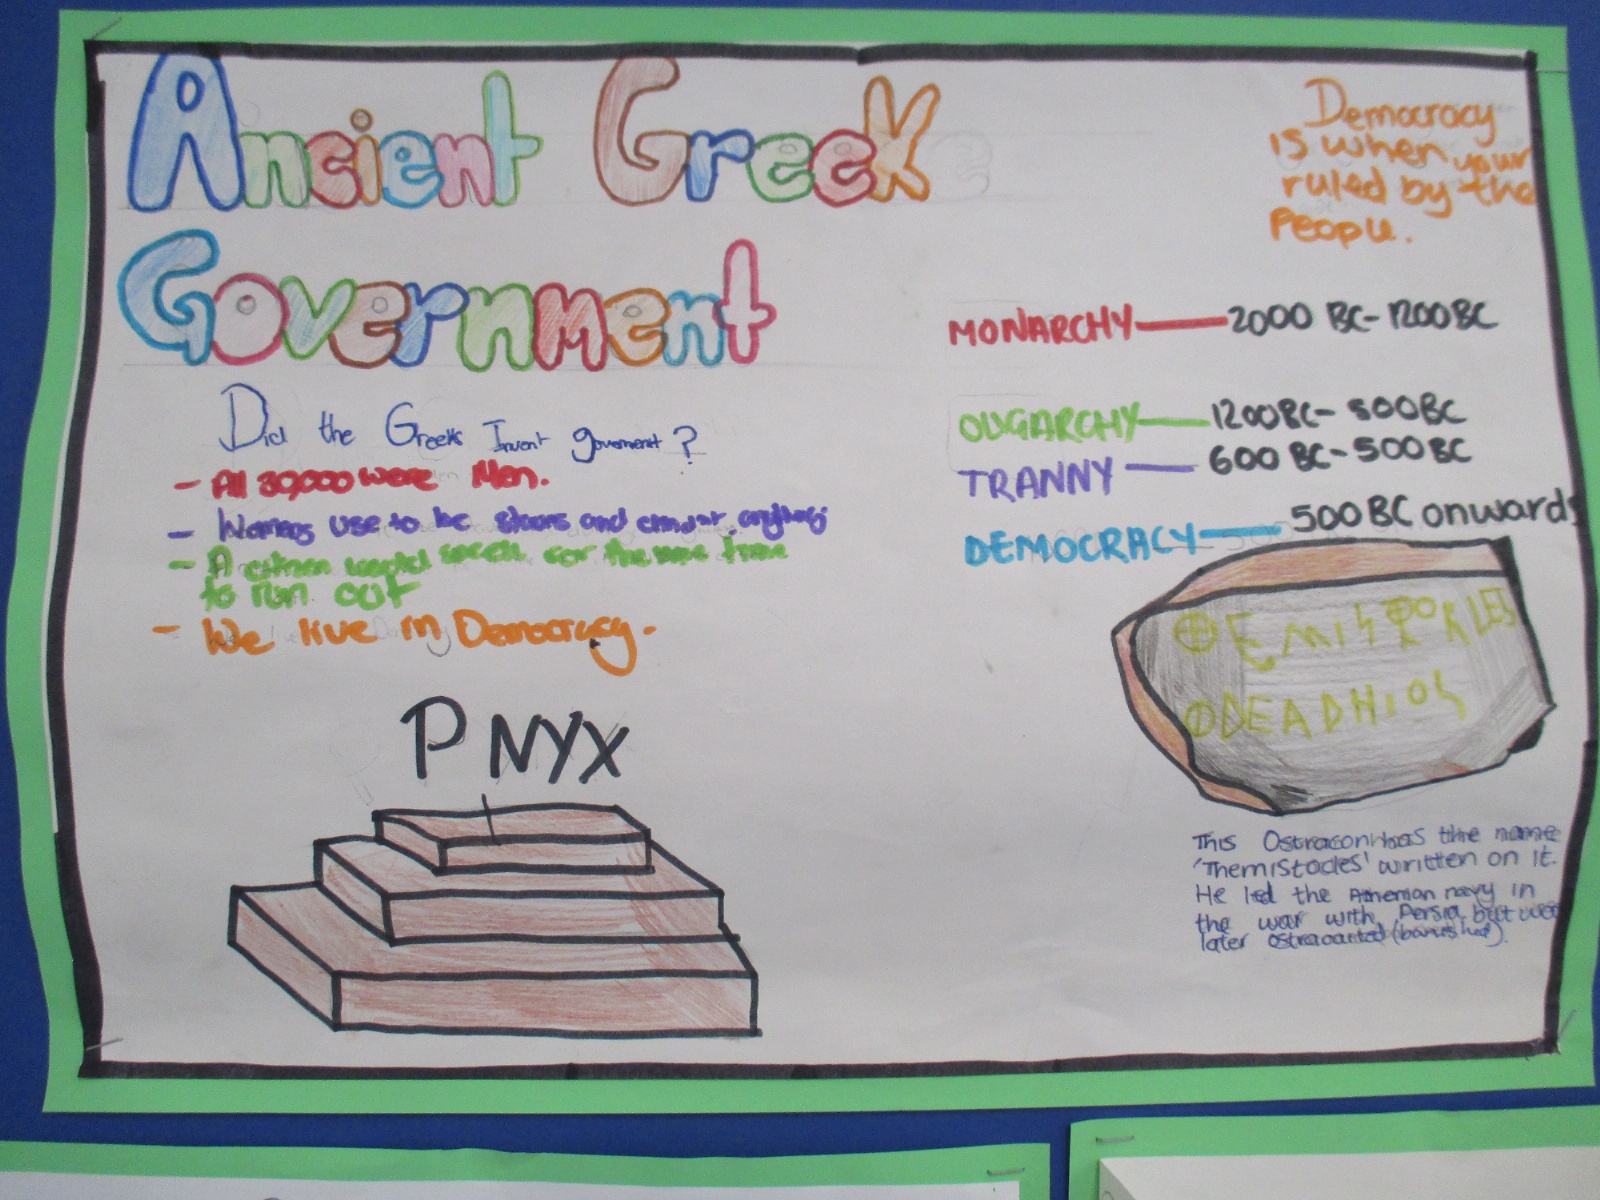 Ancient Greek
Government
Democracy
is when your
ruled by the
People.
MONARCHY — 2000 BC - 1200 BC
OLIGARCHY — 1200 BC - 500 BC
TRANNY — 600 BC - 500 BC
DEMOCRACY — 500 BC onwards
Did the Greeks Invent goverment?
- All 30,000 were Men.
- Womens use to be slaves and
- A citizen would for the time
to run out
- We live in Democracy.
PNYX
This Ostracon has the name
'Themistocles' written on it.
He led the Athenian navy in
the war with Persia but was
later (banished).